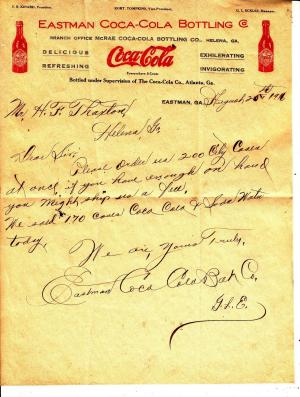 EASTMAN COCA-COLA BOTTLING Co
BRANCH OFFICE McRAE COCA-COLA BOTTLING CO., HELENA, GA.
DELICIOUS
REFRESHING
Coca-Cola
EXHILERATING
INVIGORATING
Bottled under Supervision of The Coca-Cola Co., Atlanta, Ga.
EASTMAN, GA. August
Mr. H. F. Thaxton,
Helena Ga.
Dear Sir:
Please order us 200 Cases
at once, if you have enough on hand
you might ship us a few.
We sold 170 cases Coca Cola & Soda Water
today,
We are, Yours Truly,
Eastman Coca Cola Bot. Co.
G.L.E.